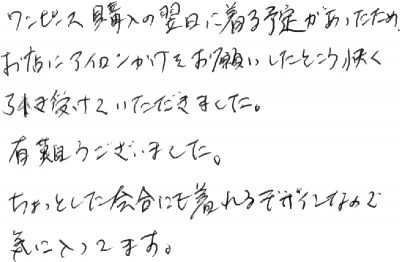 ワンピース購入の翌日に着る予定があったため、
お店にアイロンがけをお願いしたところ、快く
引き受けていただきました。
有難うございました。
ちょっとした会合にも着れるデザインなので
気に入ってます。